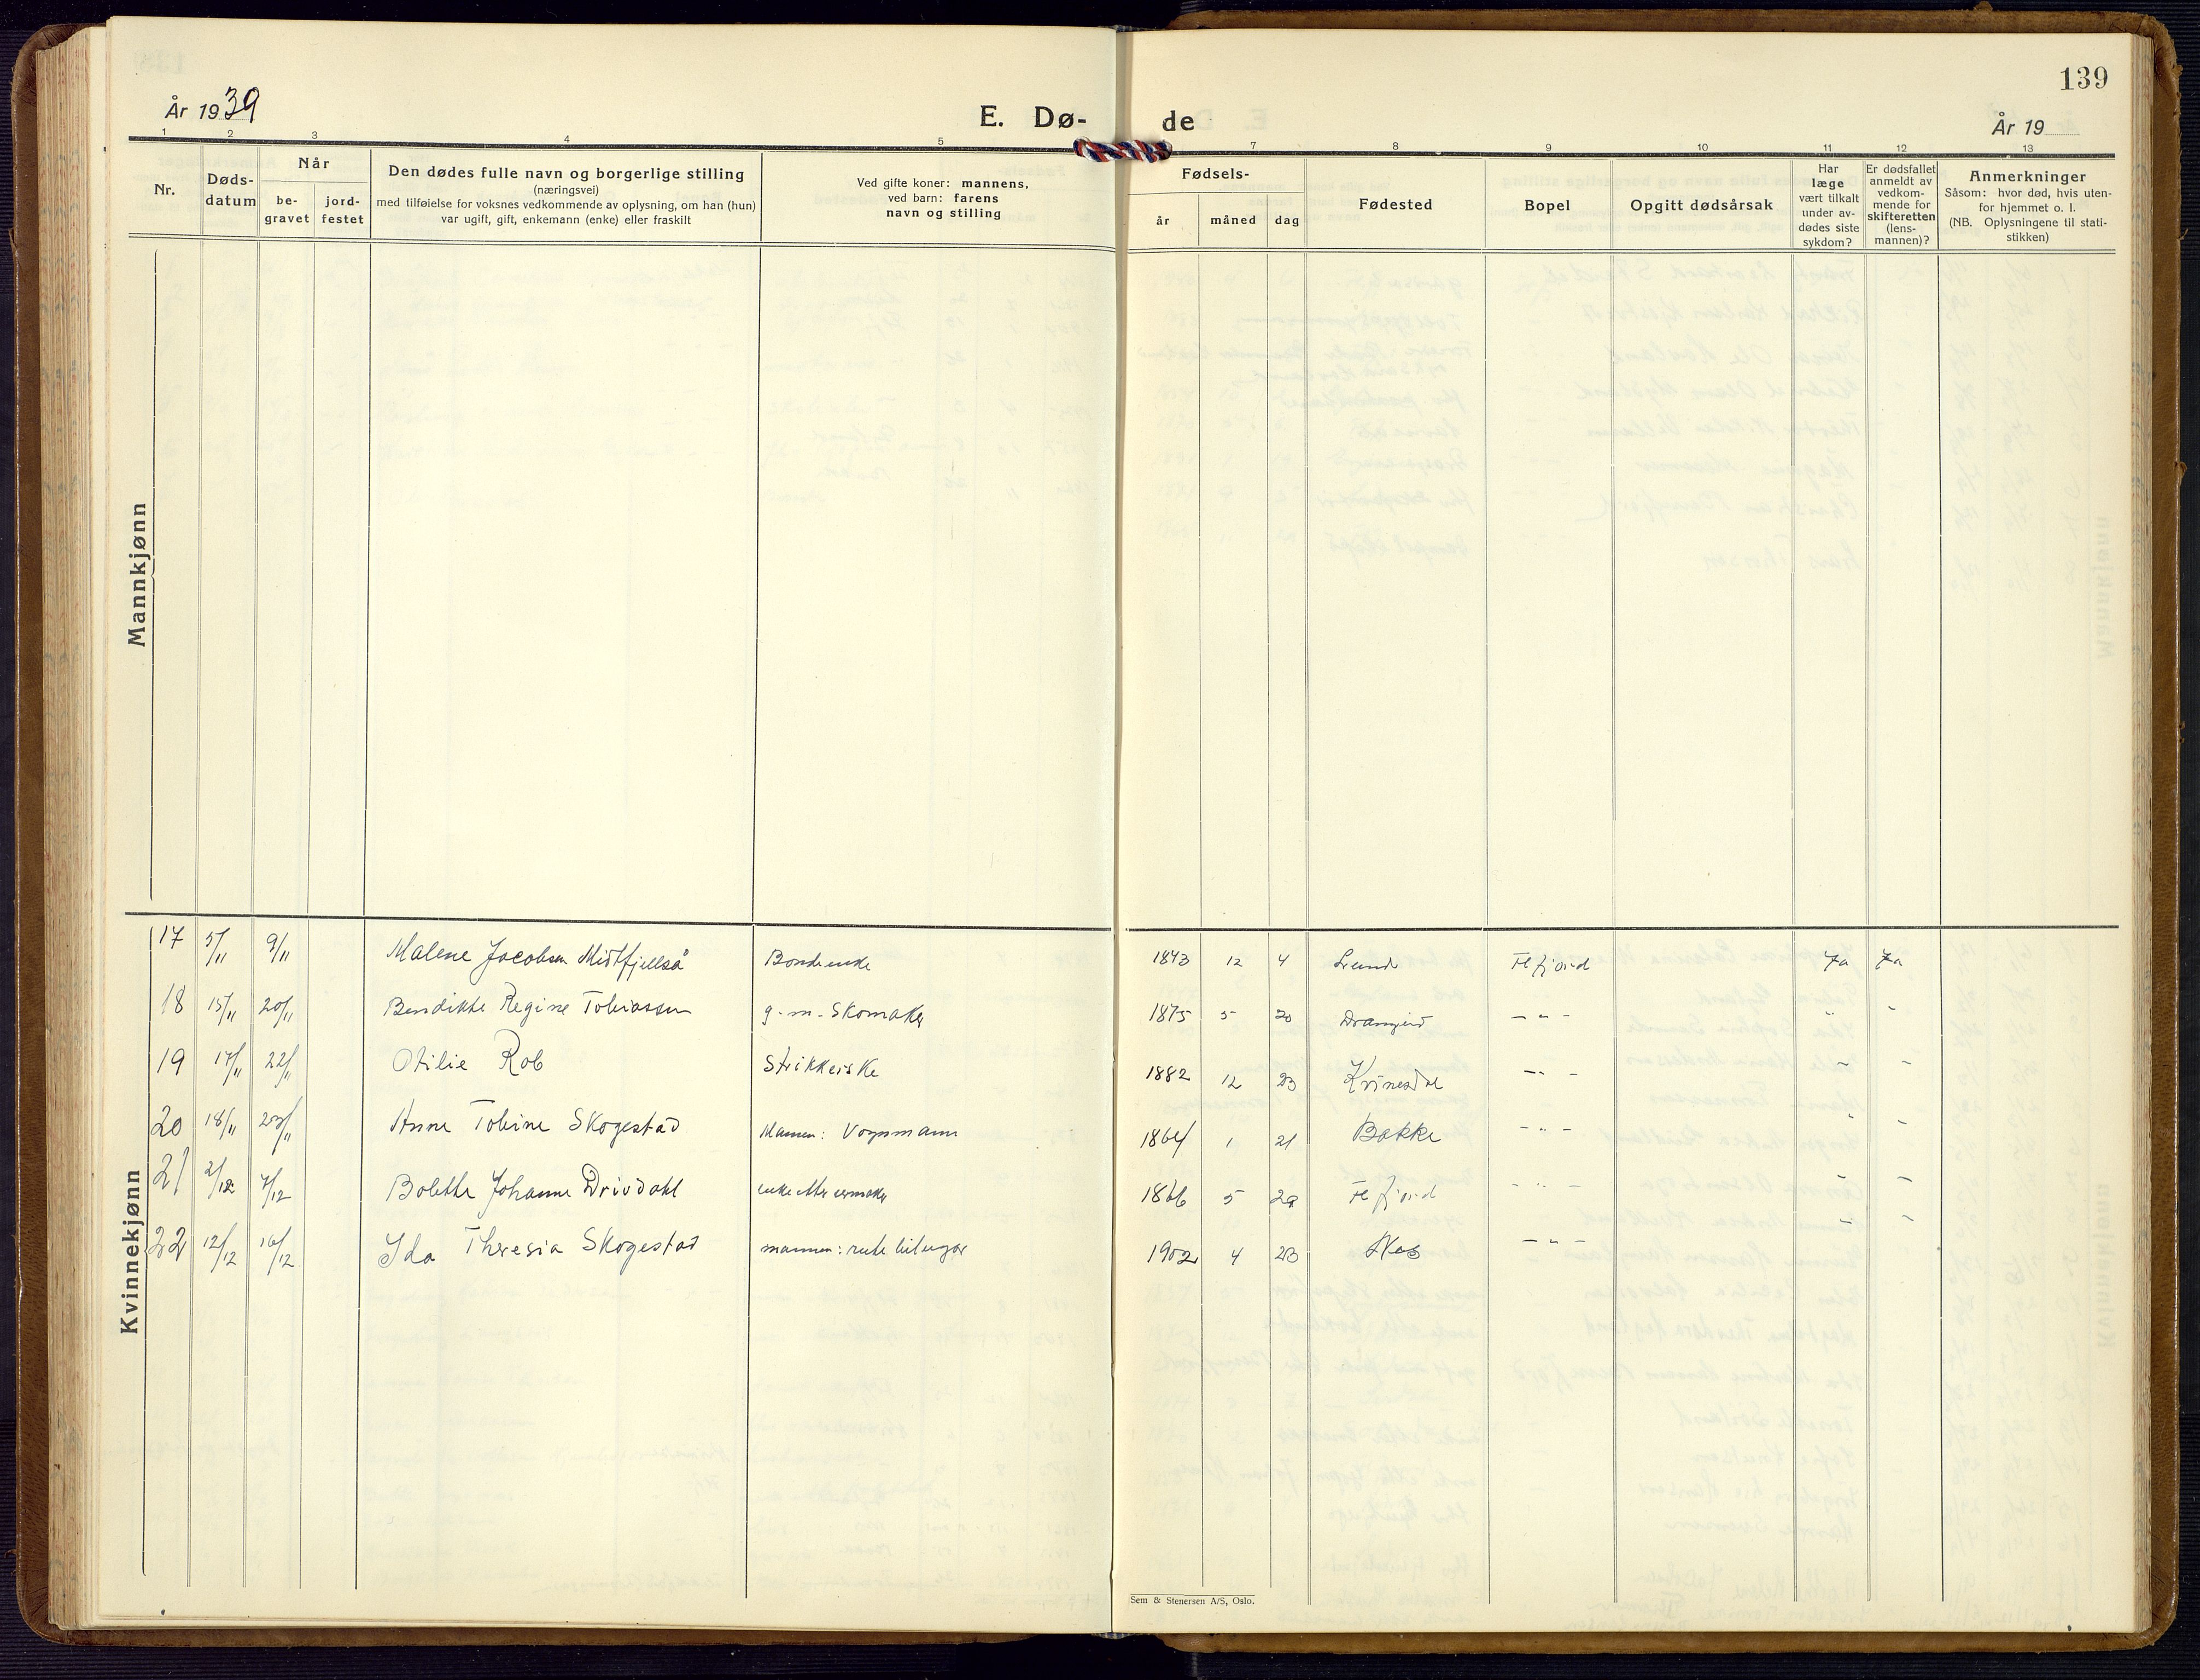 139
År 1939
E. Dø-
de
År 19
1 2 3 4 5 7 8 9 10 11 12 13
Nr.
Døds-
datum
Når
be-
gravet
jord-
festet
Den dødes fulle navn og borgerlige stilling
(næringsvei)
med tilføielse for voksnes vedkommende av oplysning, om han (hun)
var ugift, gift, enkemann (enke) eller fraskilt
Ved gifte koner: mannens,
ved barn: farens
navn og stilling
Fødsels-
år
måned
dag
Fødested
Bopel
Opgitt dødsårsak
Har
læge
vært tilkalt
under av-
dødes siste
sykdom?
Er dødsfallet
anmeldt av
vedkom-
mende for
skifteretten
(lens-
mannen)?
Anmerkninger
Såsom: hvor død, hvis uten-
for hjemmet o. l.
(NB. Oplysningene til stati-
stikken)
Mannkjønn
Kvinnekjønn
17 5/11 9/11 Malene Jacobsen Midtfjellså Bondeenke 1843 12 4 Lunde Flefjord Ja Ja
18 15/11 20/11 Bendikte Regine Tobiassen g. m. Skomaker 1875 5 20 Drangeid - " - " "
19 17/11 22/11 Otilie Rob Strikkerske 1882 12 23 Kvinesdal - " - " "
20 18/11 23/11 Anne Tobine Skogestad Mannen: Vognmann 1864 1 21 Bakke - " - " "
21 2/12 7/12 Bolette Johanne Drivdahl enke etter urmaker 1866 5 29 Flefjord - " - " "
22 12/12 16/12 Ida Theresia Skogestad mannen: rutebileigar 1902 4 23 Nes - " - " "
Sem & Stenersen A/S, Oslo.